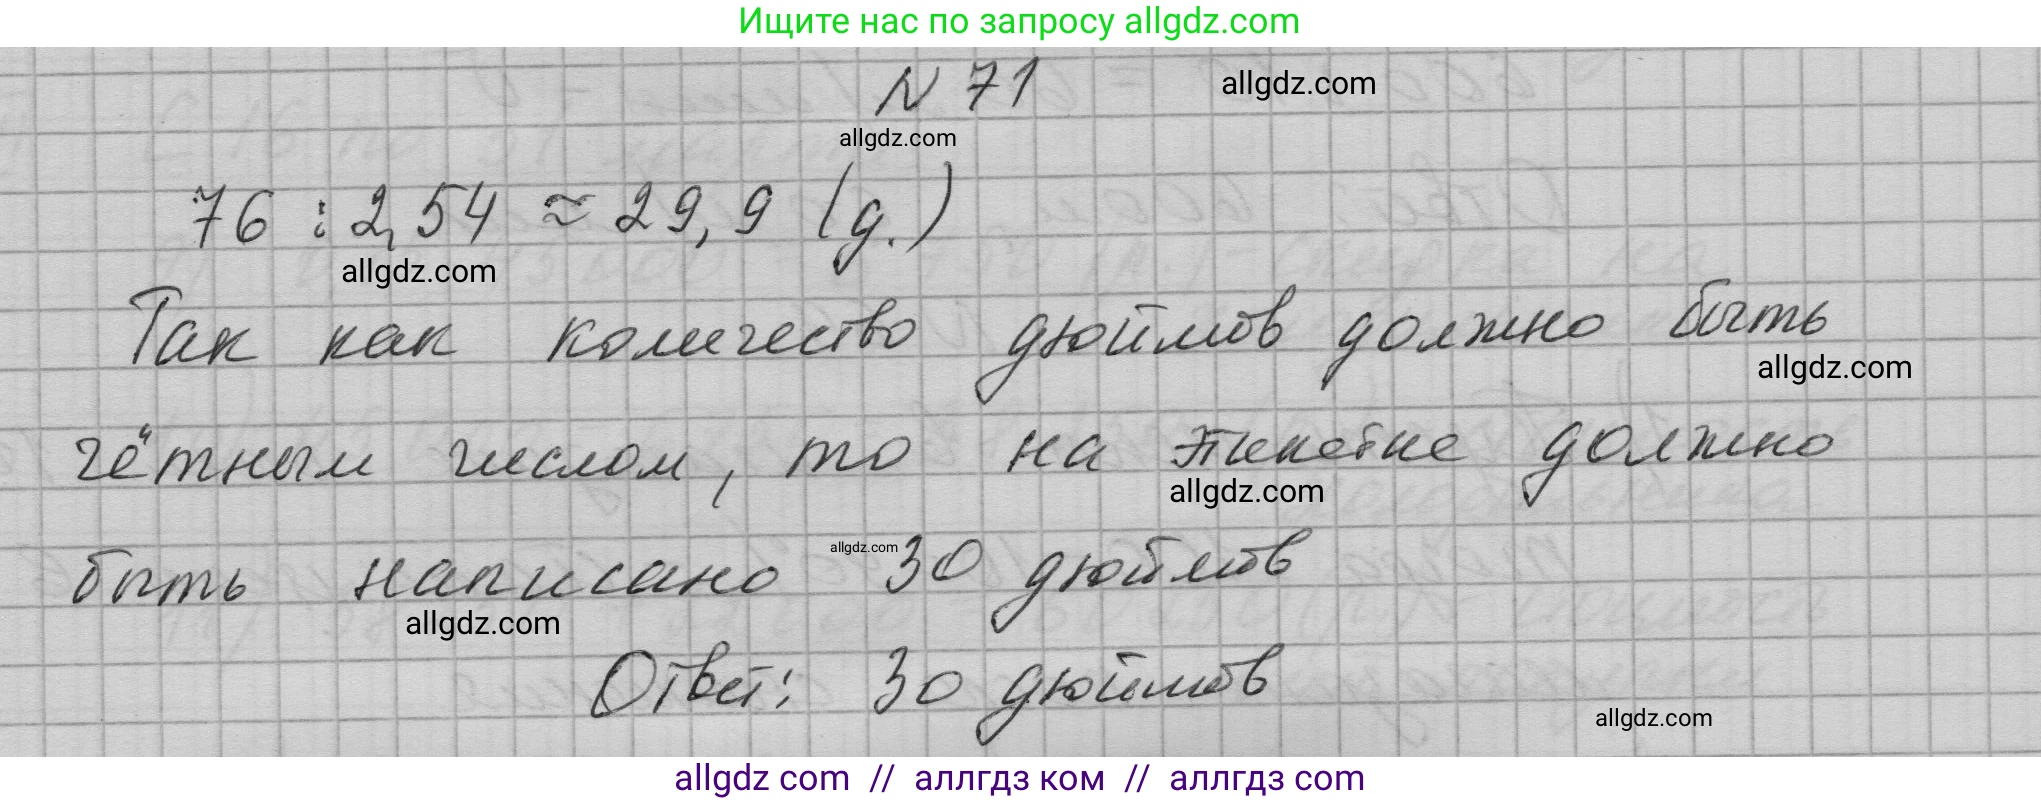 Ищите нас по запросу allgdz.com
N 71
allgdz.com
allgdz.com
76 : 2,54 ≈ 29,9 (д.)
allgdz.com
Так как количество дюймов должно быть
allgdz.com
чётным числом, то на этикетке должно
allgdz.com
быть написано 30 дюймов
allgdz.com
allgdz.com
Ответ: 30 дюймов
allgdz.com
allgdz com // аллгдз ком // аллгдз com